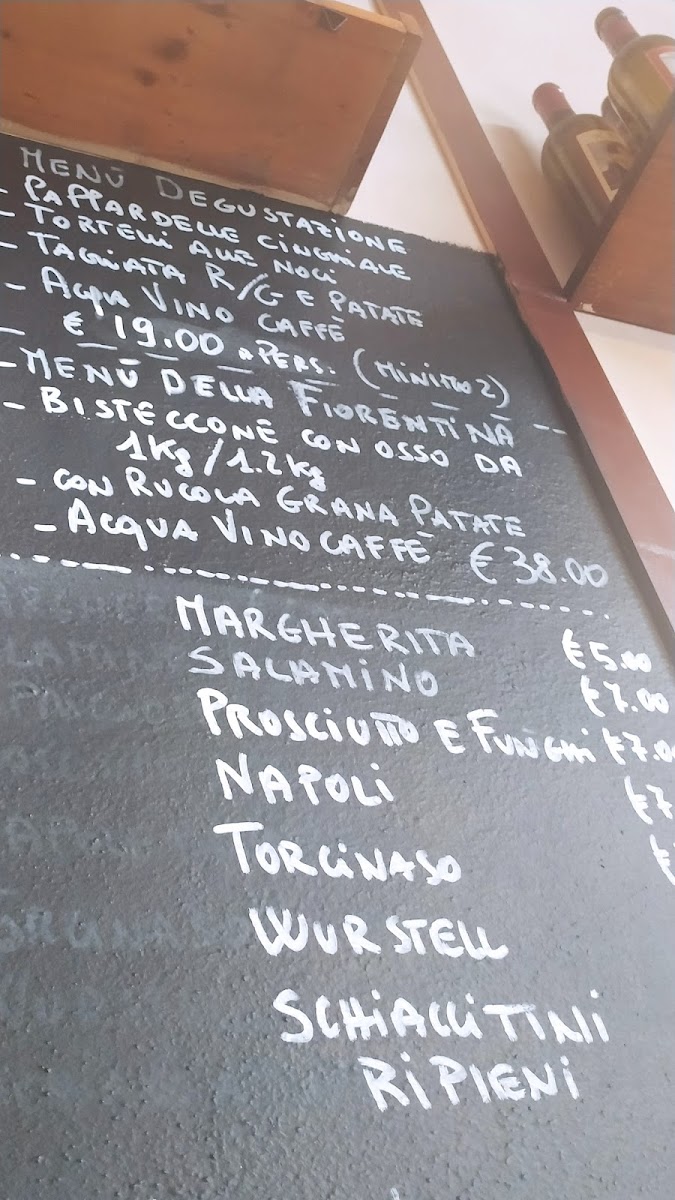 MENÙ DEGUSTAZIONE
- PAPPARDELLE CINGHIALE
- TORTELLI ALLE NOCI
- TAGLIATA R/G E PATATE
- ACQUA VINO CAFFÈ
- € 19.00 a PERS. (MINIMO 2)
- MENÙ DELLA FIORENTINA
- BISTECCONE CON OSSO DA
1Kg/1.2Kg
- CON RUCOLA GRANA PATATE
- ACQUA VINO CAFFÈ € 38.00
MARGHERITA €5.00
SALAMINO €7.00
PROSCIUTTO E FUNGHI €7.0
NAPOLI €7
TORCINASO €
WURSTELL
SCHIACCITINI
RIPIENI